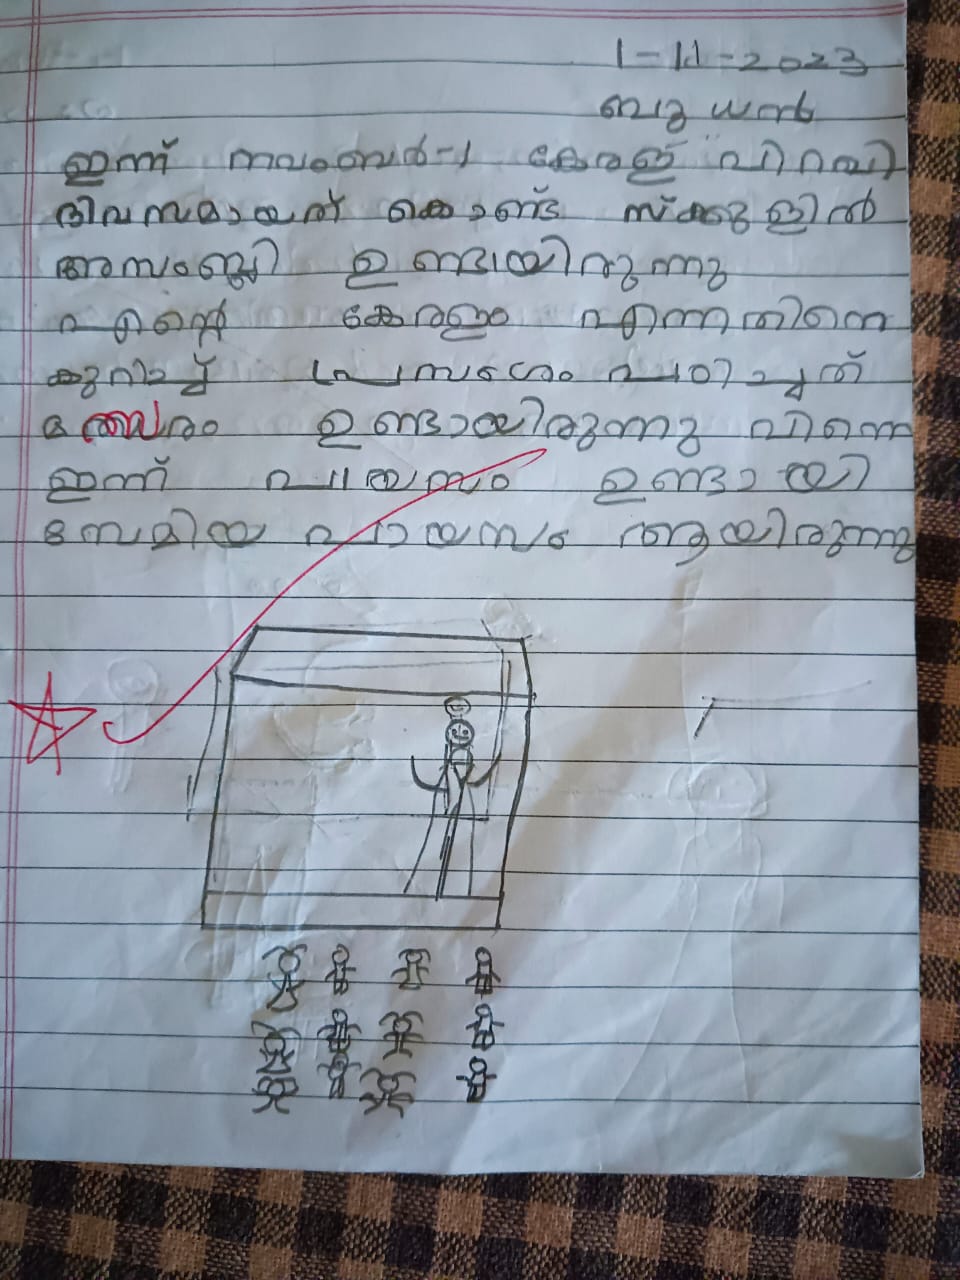 1-11-2023
ബുധൻ
ഇന്ന് നവംബർ-1 കേരള പിറവി
ദിവസമായത് കൊണ്ട് സ്ക്കൂളിൽ
അസംബ്ലി ഉണ്ടായിരുന്നു
എൻ്റെ കേരളം എന്നതിനെ
കുറിച്ച് പ്രസംഗം
മത്സരം ഉണ്ടായിരുന്നു പിന്നെ
ഇന്ന് പായസം ഉണ്ടായി
സേമിയ പായസം ആയിരുന്നു